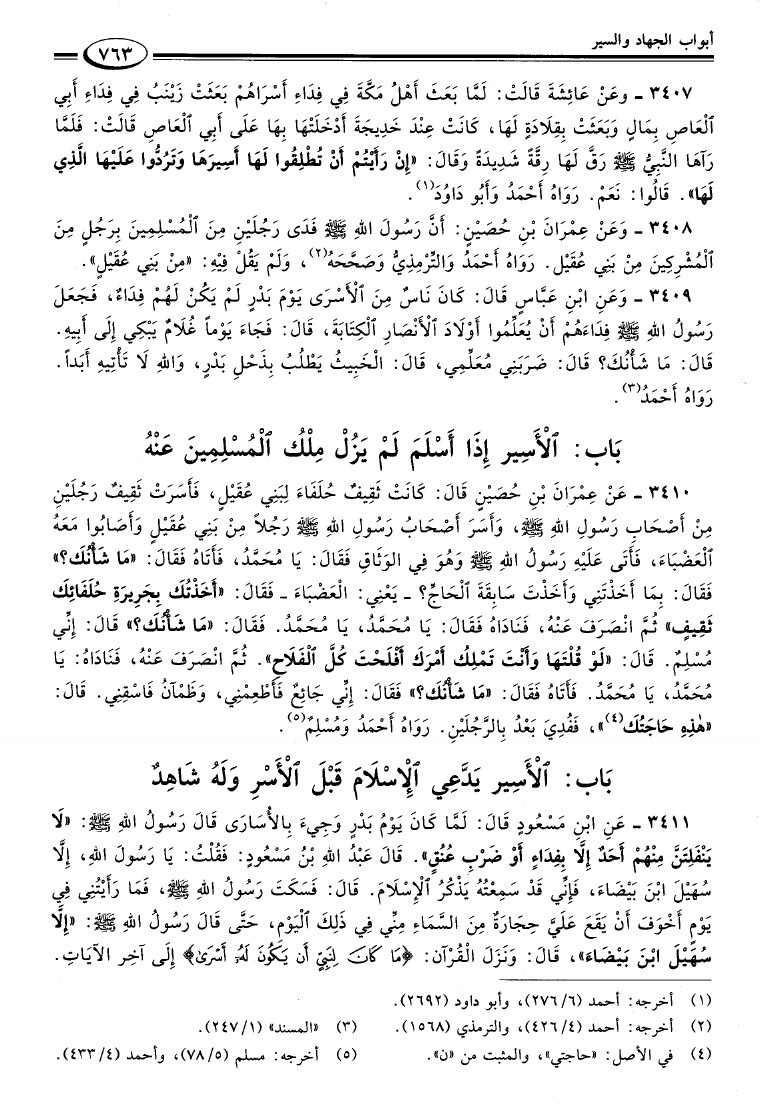 أبواب الجهاد والسير
٧٦٣
٣٤٠٧ ـ وعَنْ عائِشَةَ قَالَتْ: لَمَّا بَعَثَ أَهْلُ مَكَّةَ فِي فِدَاءِ أَسْرَاهُمْ بَعَثَتْ زَيْنَبُ فِي فِدَاءِ أَبِي
ٱلْعَاصِ بِمَالٍ وَبَعَثَتْ بِقِلَادَةٍ لَهَا، كَانَتْ عِنْدَ خَدِيجَةَ أَدْخَلَتْهَا بِهَا عَلَى أَبِي ٱلْعَاصِ قَالَتْ: فَلَمَّا
رَآهَا النَّبِيُّ ﷺ رَقَّ لَهَا رِقَّةً شَدِيدَةً وَقَالَ: «إِنْ رَأَيْتُمْ أَنْ تُطْلِقُوا لَهَا أَسِيرَهَا وَتَرُدُّوا عَلَيْهَا الَّذِي
لَهَا». قَالُوا: نَعَمْ. رَوَاهُ أَحْمَدُ وَأَبُو دَاوُدَ(١).
٣٤٠٨ ـ وَعَنْ عِمْرَانَ بْنِ حُصَيْنٍ: أَنَّ رَسُولَ اللهِ ﷺ فَدَى رَجُلَيْنِ مِنَ ٱلْمُسْلِمِينَ بِرَجُلٍ مِنَ
ٱلْمُشْرِكِينَ مِنْ بَنِي عُقَيْلٍ. رَوَاهُ أَحْمَدُ وَالتِّرْمِذِيُّ وَصَحَّحَهُ(٢)، وَلَمْ يَقُلْ فِيهِ: «مِنْ بَنِي عُقَيْلٍ».
٣٤٠٩ ـ وَعَنِ ابْنِ عَبَّاسٍ قَالَ: كَانَ نَاسٌ مِنَ ٱلْأَسْرَى يَوْمَ بَدْرٍ لَمْ يَكُنْ لَهُمْ فِدَاءٌ، فَجَعَلَ
رَسُولُ اللهِ ﷺ فِدَاءَهُمْ أَنْ يُعَلِّمُوا أَوْلَادَ ٱلْأَنْصَارِ ٱلْكِتَابَةَ، قَالَ: فَجَاءَ يَوْماً غُلَامٌ يَبْكِي إِلَى أَبِيهِ.
قَالَ: مَا شَأْنُكَ؟ قَالَ: ضَرَبَنِي مُعَلِّمِي، قَالَ: ٱلْخَبِيثُ يَطْلُبُ بِذَحْلِ بَدْرٍ، وَاللهِ لَا تَأْتِيهِ أَبَداً.
رَوَاهُ أَحْمَدُ(٣).
بَاب: ٱلْأَسِير إِذَا أَسْلَمَ لَمْ يَزُلْ مِلْكُ ٱلْمُسْلِمِينَ عَنْهُ
٣٤١٠ ـ عَنْ عِمْرَانَ بْنِ حُصَيْنٍ قَالَ: كَانَتْ ثَقِيفٌ حُلَفَاءَ لِبَنِي عُقَيْلٍ، فَأَسَرَتْ ثَقِيفُ رَجُلَيْنِ
مِنْ أَصْحَابِ رَسُولِ اللهِ ﷺ، وَأَسَرَ أَصْحَابُ رَسُولِ اللهِ ﷺ رَجُلاً مِنْ بَنِي عُقَيْلٍ وَأَصَابُوا مَعَهُ
ٱلْعَضْبَاءَ، فَأَتَى عَلَيْهِ رَسُولُ اللهِ ﷺ وَهُوَ فِي الوَثَاقِ فَقَالَ: يَا مُحَمَّدُ، فَأَتَاهُ فَقَالَ: «مَا شَأْنُكَ؟»
فَقَالَ: بِمَا أَخَذْتَنِي وَأَخَذْتَ سَابِقَةَ ٱلْحَاجِّ؟ ـ يَعْنِي: ٱلْعَضْبَاءَ ـ فَقَالَ: «أَخَذْتُكَ بِجَرِيرَةِ حُلَفَائِكَ
ثَقِيفٍ» ثُمَّ انْصَرَفَ عَنْهُ، فَنَادَاهُ فَقَالَ: يَا مُحَمَّدُ، يَا مُحَمَّدُ. فَقَالَ: «مَا شَأْنُكَ؟» قَالَ: إِنِّي
مُسْلِمٌ. قَالَ: «لَوْ قُلْتَهَا وَأَنْتَ تَمْلِكُ أَمْرَكَ أَفْلَحْتَ كُلَّ ٱلْفَلَاحِ». ثُمَّ انْصَرَفَ عَنْهُ، فَنَادَاهُ: يَا
مُحَمَّدُ، يَا مُحَمَّدُ. فَأَتَاهُ فَقَالَ: «مَا شَأْنُكَ؟» فَقَالَ: إِنِّي جَائِعٌ فَأَطْعِمْنِي، وَظَمْآنُ فَاسْقِنِي. قَالَ:
«هٰذِهِ حَاجَتُكَ(٤)»، فَفُدِيَ بَعْدُ بِالرَّجُلَيْنِ. رَوَاهُ أَحْمَدُ وَمُسْلِمٌ(٥).
بَاب: ٱلْأَسِير يَدَّعِي ٱلْإِسْلَامَ قَبْلَ ٱلْأَسْرِ وَلَهُ شَاهِدٌ
٣٤١١ ـ عَنِ ابْنِ مَسْعُودٍ قَالَ: لَمَّا كَانَ يَوْمُ بَدْرٍ وَجِيءَ بِالأُسَارَى قَالَ رَسُولُ اللهِ ﷺ: «لَا
يَنْفَلِتَنَّ مِنْهُمْ أَحَدٌ إِلَّا بِفِدَاءٍ أَوْ ضَرْبِ عُنُقٍ». قَالَ عَبْدُ اللهِ بْنُ مَسْعُودٍ: فَقُلْتُ: يَا رَسُولَ اللهِ، إِلَّا
سُهَيْلَ ابْنَ بَيْضَاءَ، فَإِنِّي قَدْ سَمِعْتُهُ يَذْكُرُ ٱلْإِسْلَامَ. قَالَ: فَسَكَتَ رَسُولُ اللهِ ﷺ، فَمَا رَأَيْتُنِي فِي
يَوْمٍ أَخْوَفَ أَنْ يَقَعَ عَلَيَّ حِجَارَةٌ مِنَ السَّمَاءِ مِنِّي فِي ذٰلِكَ ٱلْيَوْمِ، حَتَّى قَالَ رَسُولُ اللهِ ﷺ: «إِلَّا
سُهَيْلَ ابْنَ بَيْضَاءَ»، قَالَ: وَنَزَلَ الْقُرْآنُ: ﴿مَا كَانَ لِنَبِيٍّ أَن يَكُونَ لَهُۥ أَسْرَىٰ﴾ إِلَى آخِرِ الآيَاتِ.
(١) أخرجه: أحمد (٢٧٦/٦)، وأبو داود (٢٦٩٢).
(٢) أخرجه: أحمد (٤٢٦/٤)، والترمذي (١٥٦٨).
(٣) «المسند» (٢٤٧/١).
(٤) في الأصل: «حاجتي»، والمثبت من «ن».
(٥) أخرجه: مسلم (٧٨/٥)، وأحمد (٤٣٣/٤).